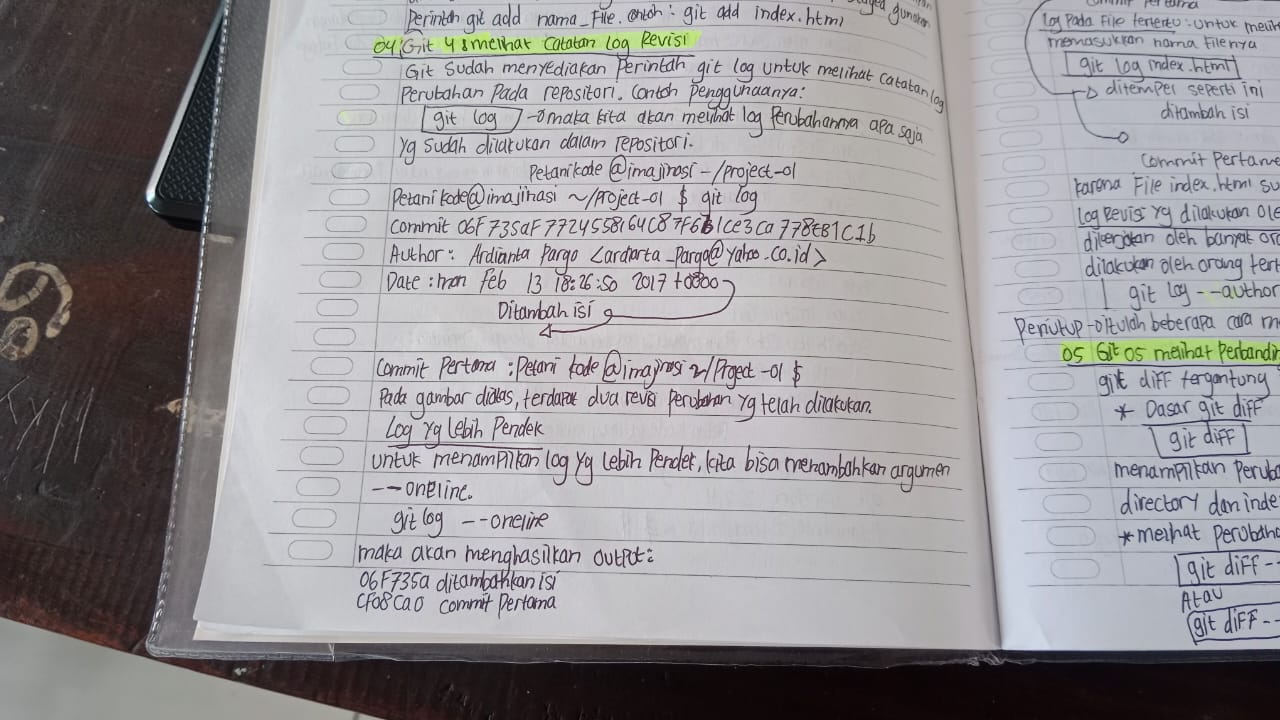 Perintah git add nama_File. contoh : git add index.html
04 Git 4 : melihat Catatan Log Revisi
Git Sudah menyediakan Perintah git log untuk melihat catatan log
Perubahan Pada repositori. Contoh Penggunaanya:
git log → maka kita akan melihat log Perubahannya apa saja
Yg Sudah dilakukan dalam repositori.
Petanikode @imajinasi ~/Project-01
Petanikode@imajinasi ~/Project-01 $ git log
Commit
Author : Ardianta Pargo <ardianta_Pargo@yahoo.co.id>
Date : mon Feb 13 18:26:50 2017 +0800
Ditambah isi
Commit Pertama : Petani kode @imajinasi ~/Project -01 $
Pada gambar diatas, terdapat dua revisi perubahan yg telah dilakukan.
Log Yg Lebih Pendek
untuk menampilkan log yg lebih Pendek, kita bisa menambahkan argumen
--oneline.
git log --oneline
maka akan menghasilkan output:
06F735a ditambahkan isi
CF08Ca0 Commit Pertama
Commit Pertama
Log Pada File tertentu : untuk
memasukkan nama Filenya
git log index.html
ditempel seperti ini
ditambah isi
Commit Pertama
karena File index.html
Log Revisi Yg dilakukan
dikerjakan oleh banyak
dilakukan oleh orang
git log --author
Penutup - Itulah beberapa cara
05 Git 05 melihat
git diff tergantung
* Dasar git diff
git diff
menampilkan
directory dan
* melihat
git diff --
Atau
git diff --